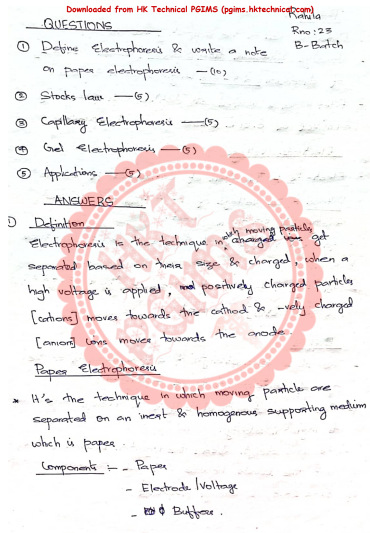 Downloaded from HK Technical PGIMS (pgims.hktechnical.com)
Rahila
QUESTIONS
Rno: 23
B-Batch
① Define Electrophoresis & write a note
on paper electrophoresis —(10)
② Stocks law —(5)
③ Capillary Electrophoresis —(5)
④ Gel Electrophoresis —(5)
⑤ Applications —(5)
ANSWERS
① Definition
Electrophoresis is the technique in which moving particles get
separated based on their size & charged, when a
high voltage is applied, positively charged particles
[cations] moves towards the cathod & -vely charged
[anion] ions moves towards the anode.
Paper Electrophoresis
* It's the technique in which moving particle are
separated on an inert & homogenous supporting medium
which is paper.
Components :- - Paper
- Electrode/Voltage
- Buffers.